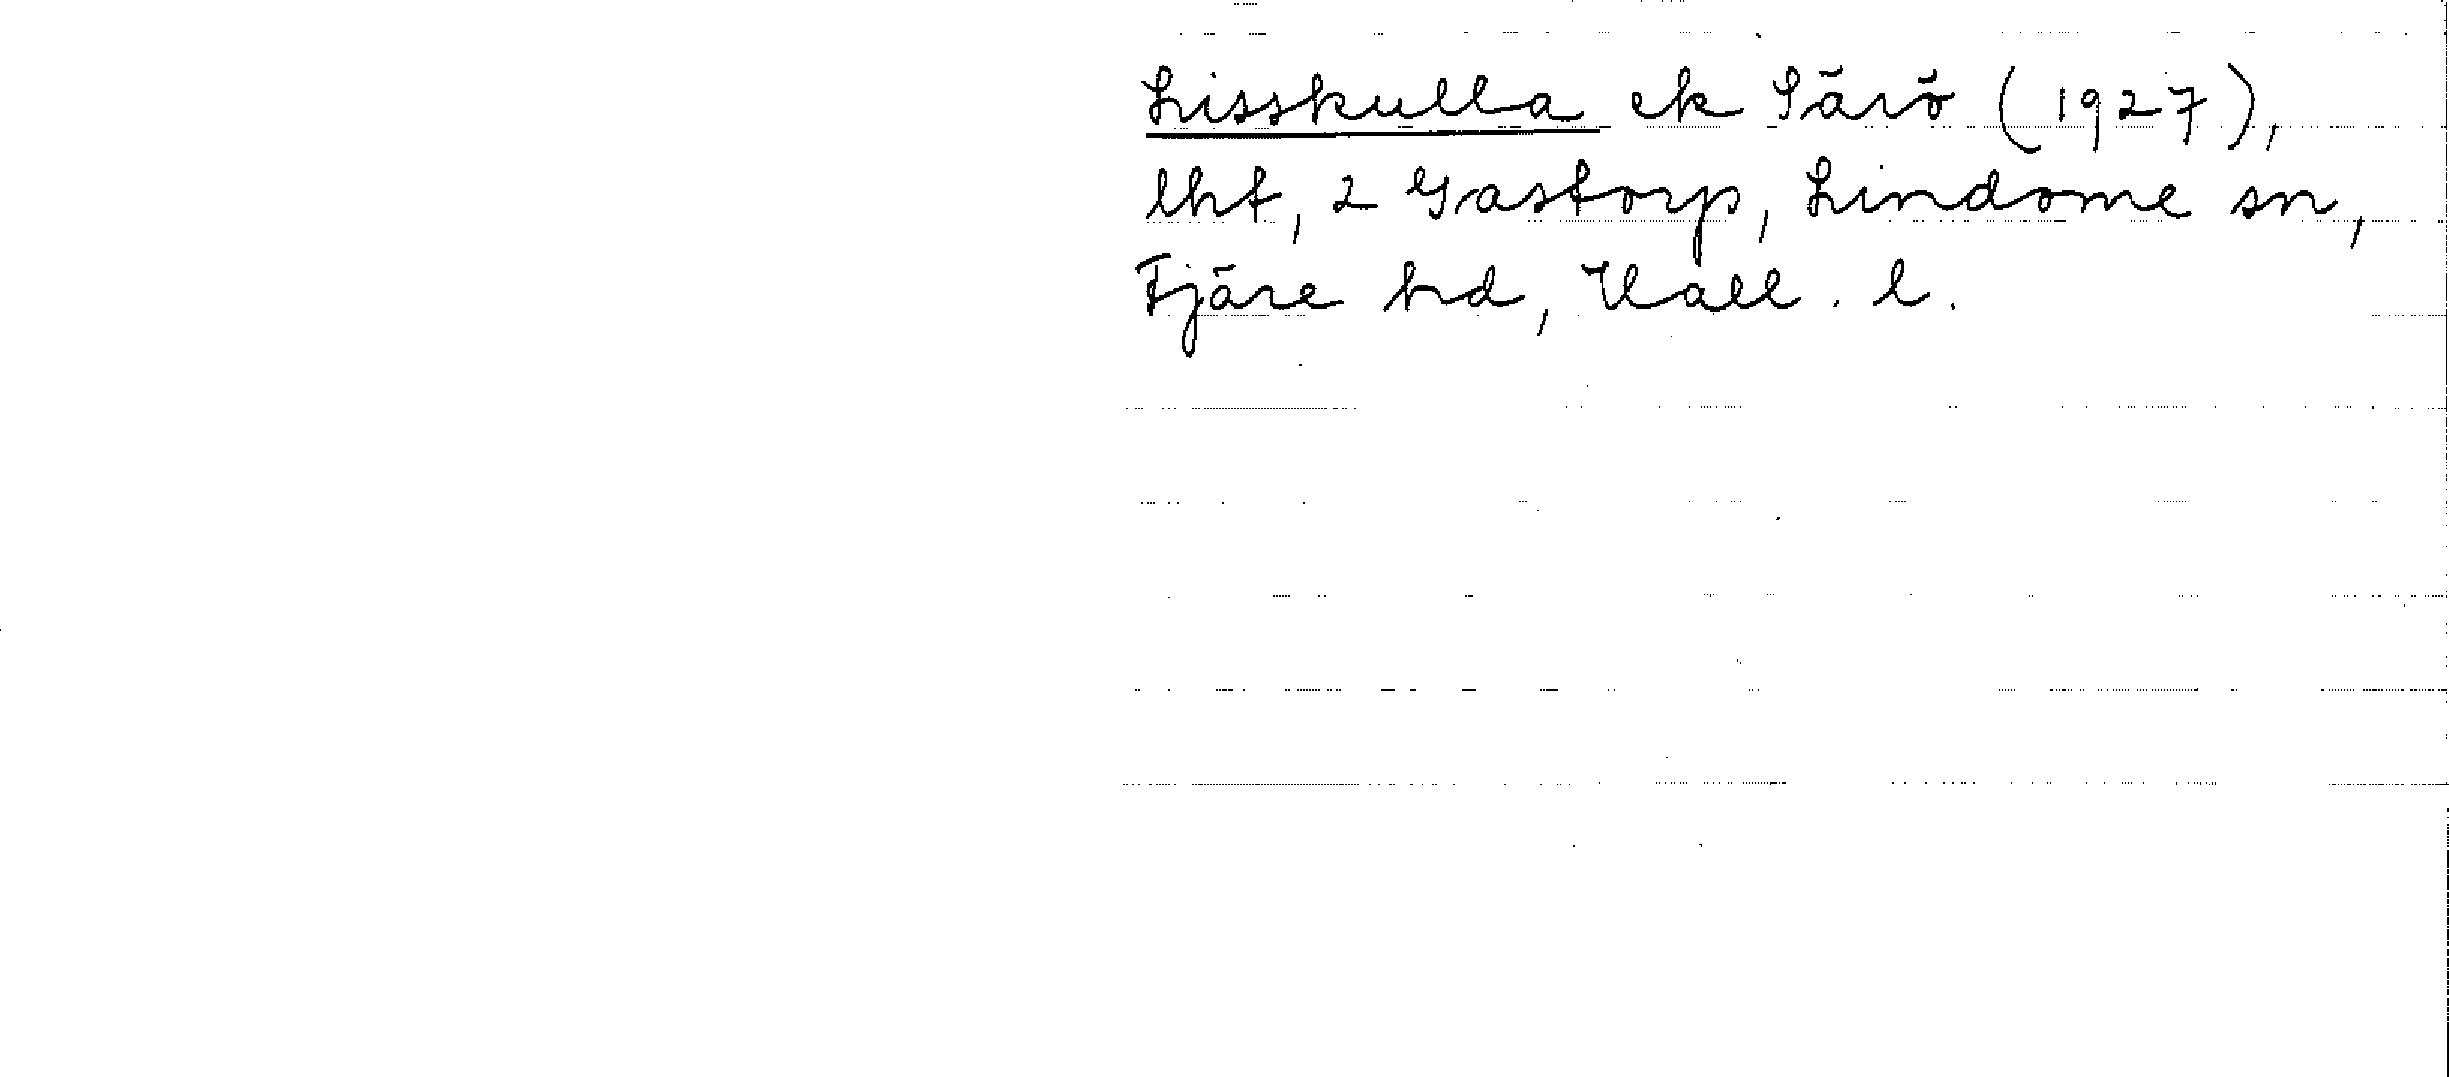 Lisskulla ek Särö (1927),
lht, 2 Gastorp, Lindome sn,
Fjäre hd, Hall. l.